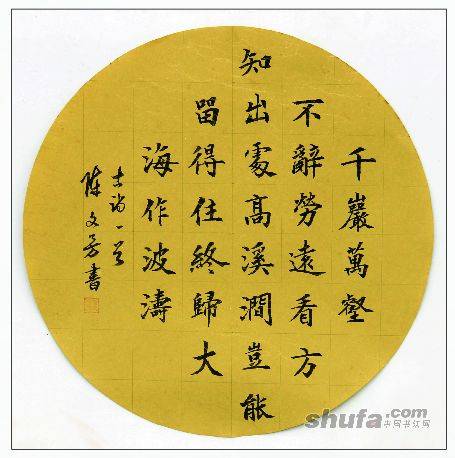 千巖萬壑
不辭勞遠看方
知出處高溪澗豈能
留得住終歸大
海作波濤
古诗一首
陈文芳書
shufa.com